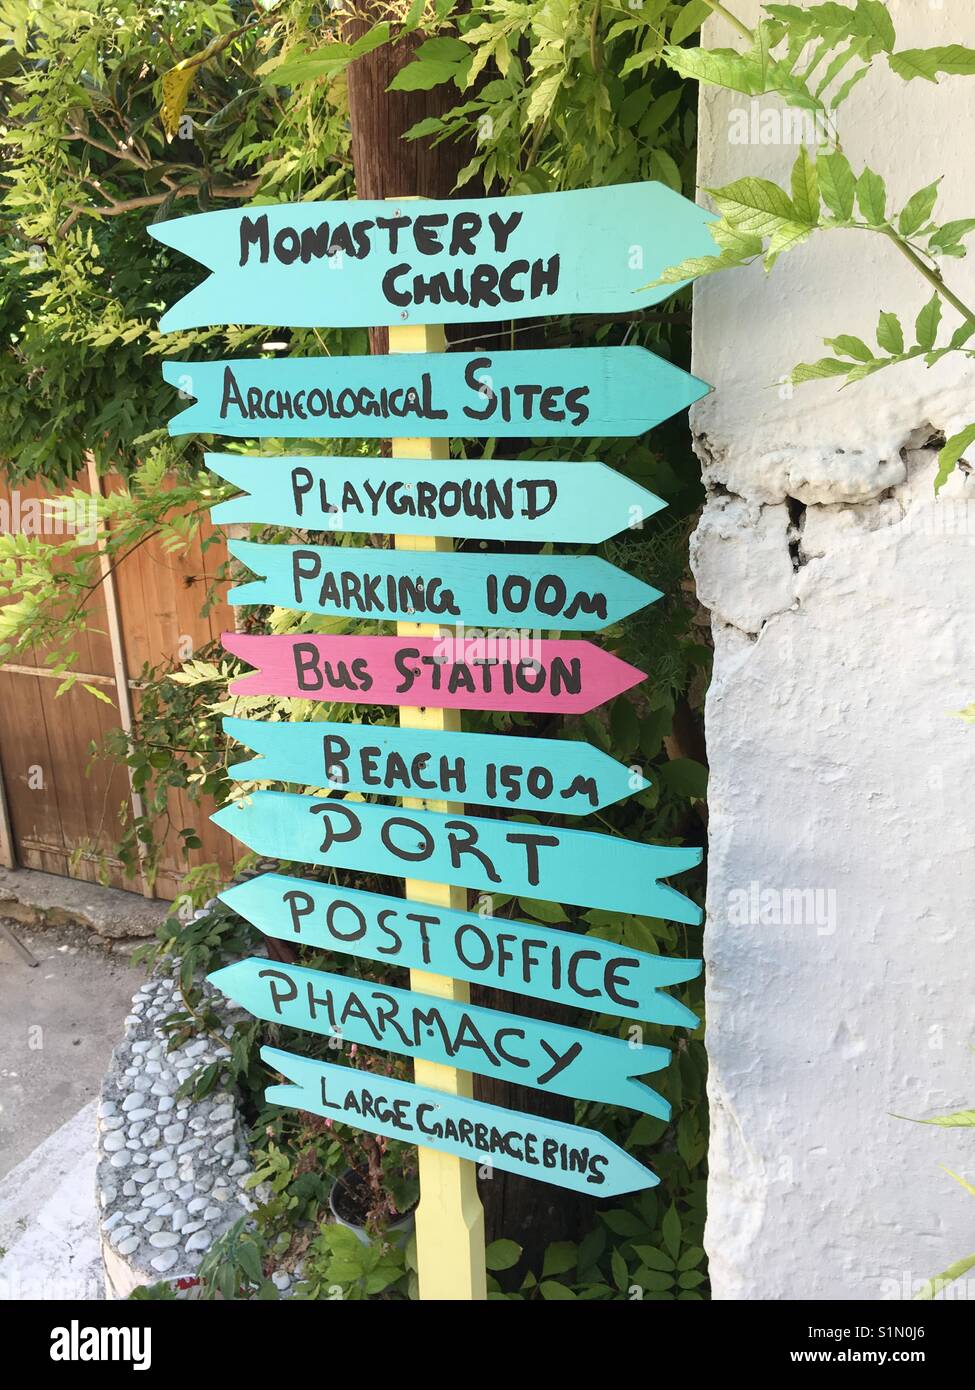 MONASTERY
CHURCH
ARCHEOLOGICAL SITES
PLAYGROUND
PARKING 100M
BUS STATION
BEACH 150M
PORT
POST OFFICE
PHARMACY
LARGE GARBAGE BINS
alamy
alamy
a
Image ID: S1N0J6
www.alamy.com